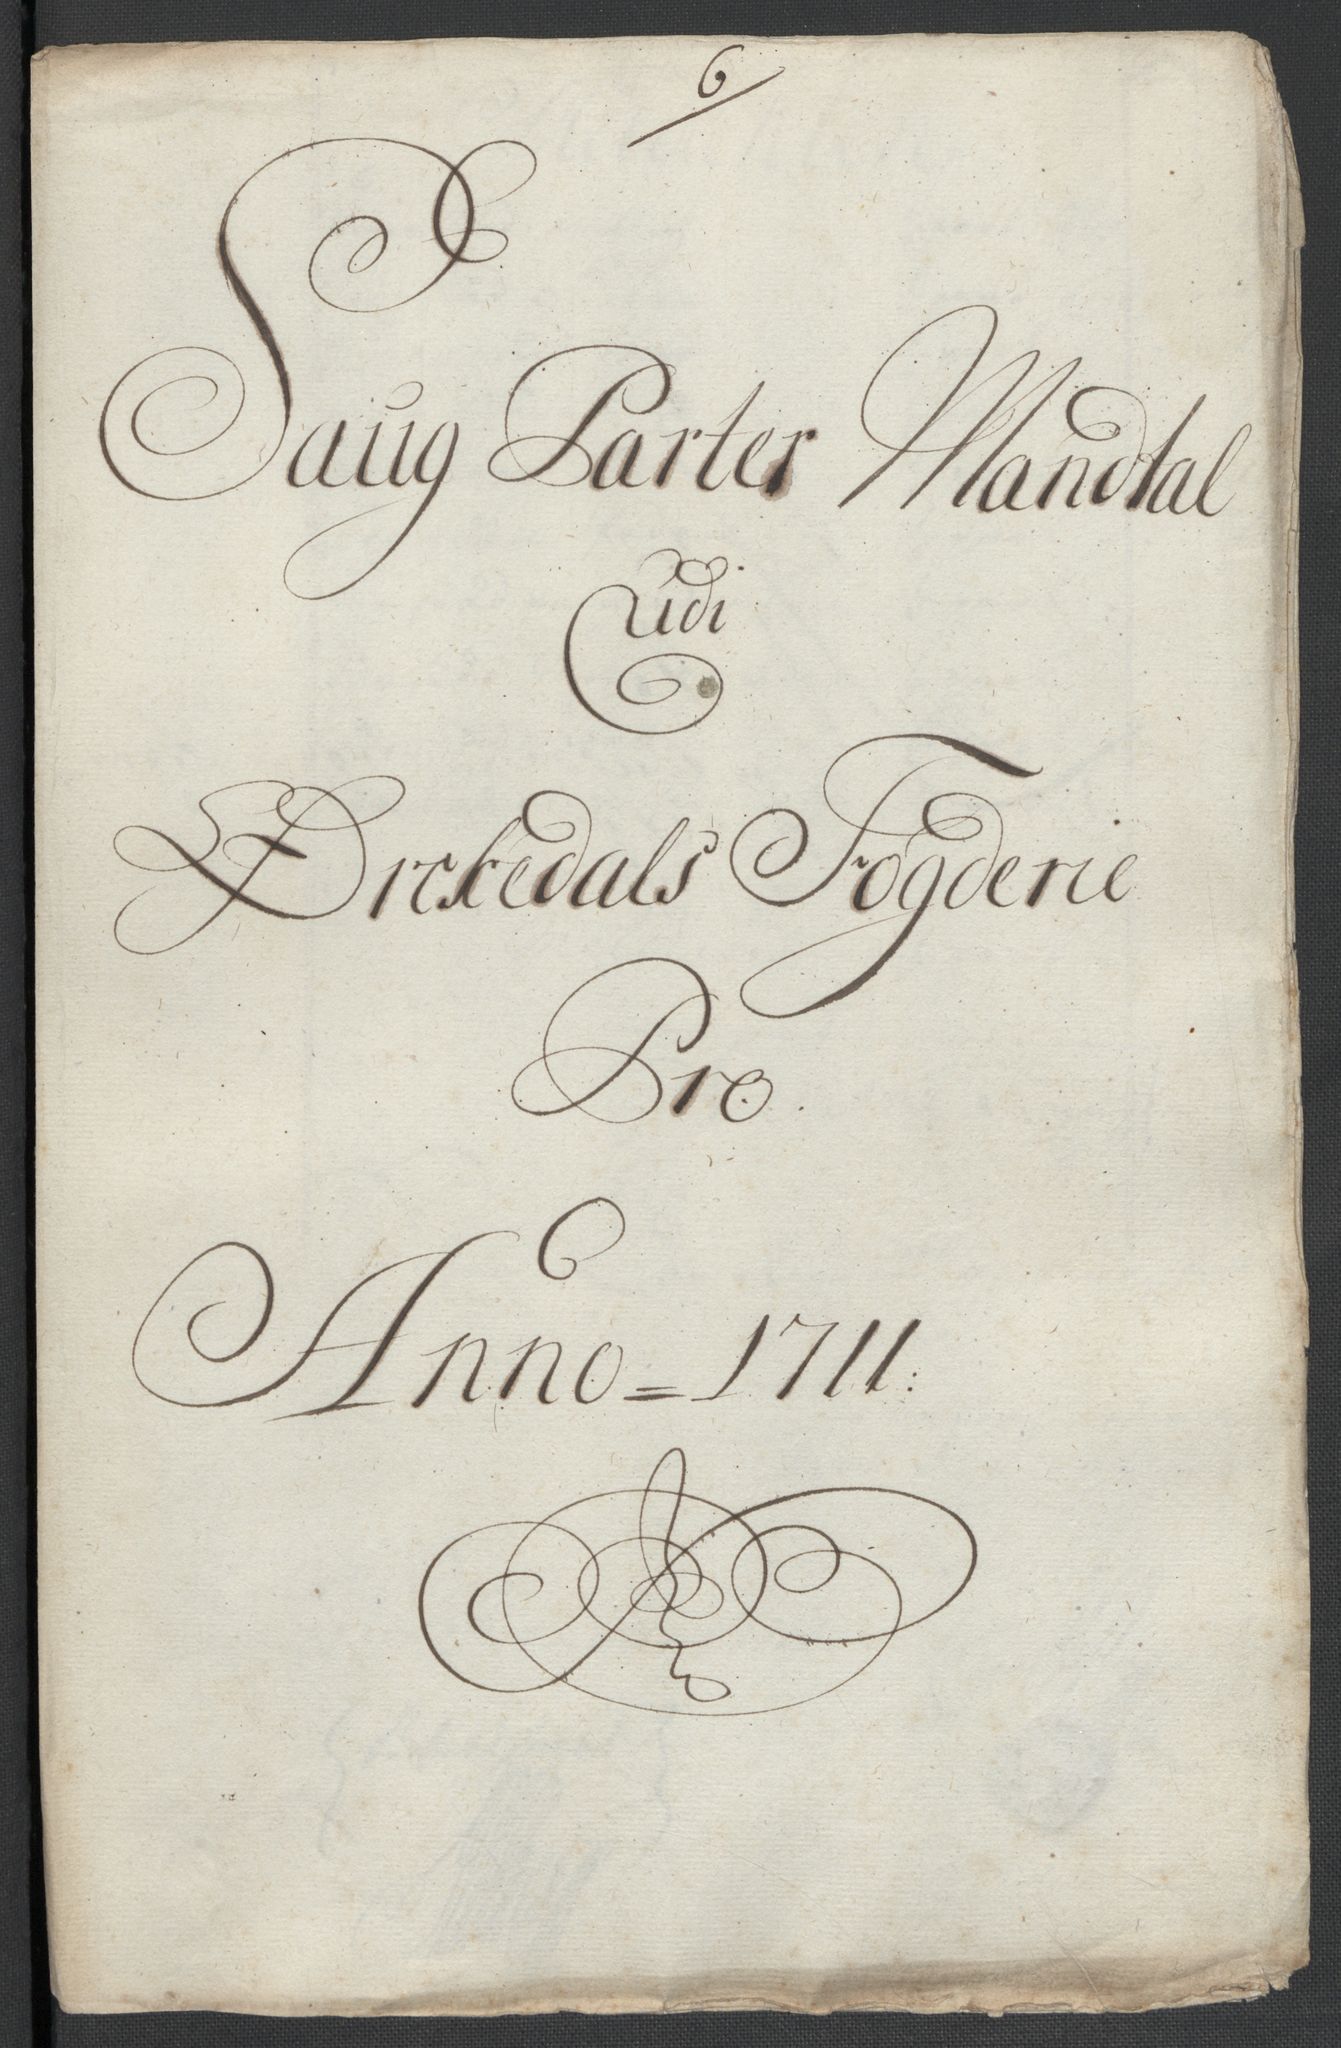 6
Saug Parter Mandtal
Udi
Ørckedals Fogderie
Pro.
Anno = 1711: